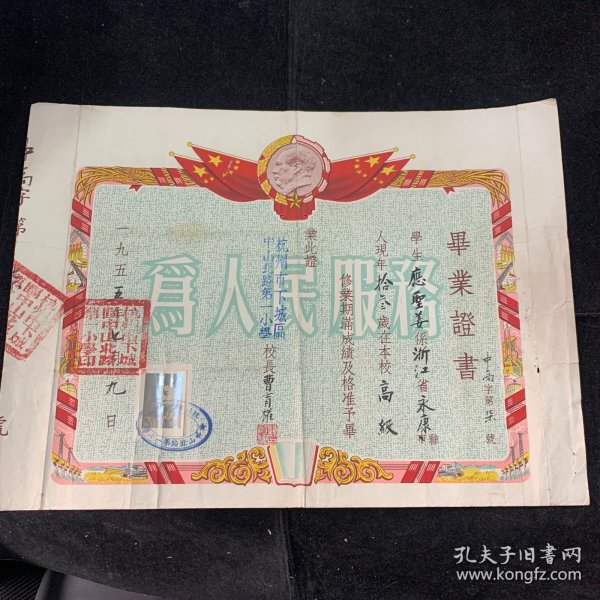 畢業證書
中高字第柒號
學生應聖姜係浙江省永康縣市
人現年拾叁歲在本校高級
修業期滿成績及格准予畢
業此證
杭州市下城區
中山北路第一小學校長曹育雄
一九五五年七月九日
爲人民服務
孔夫子旧书网
www.kongfz.com